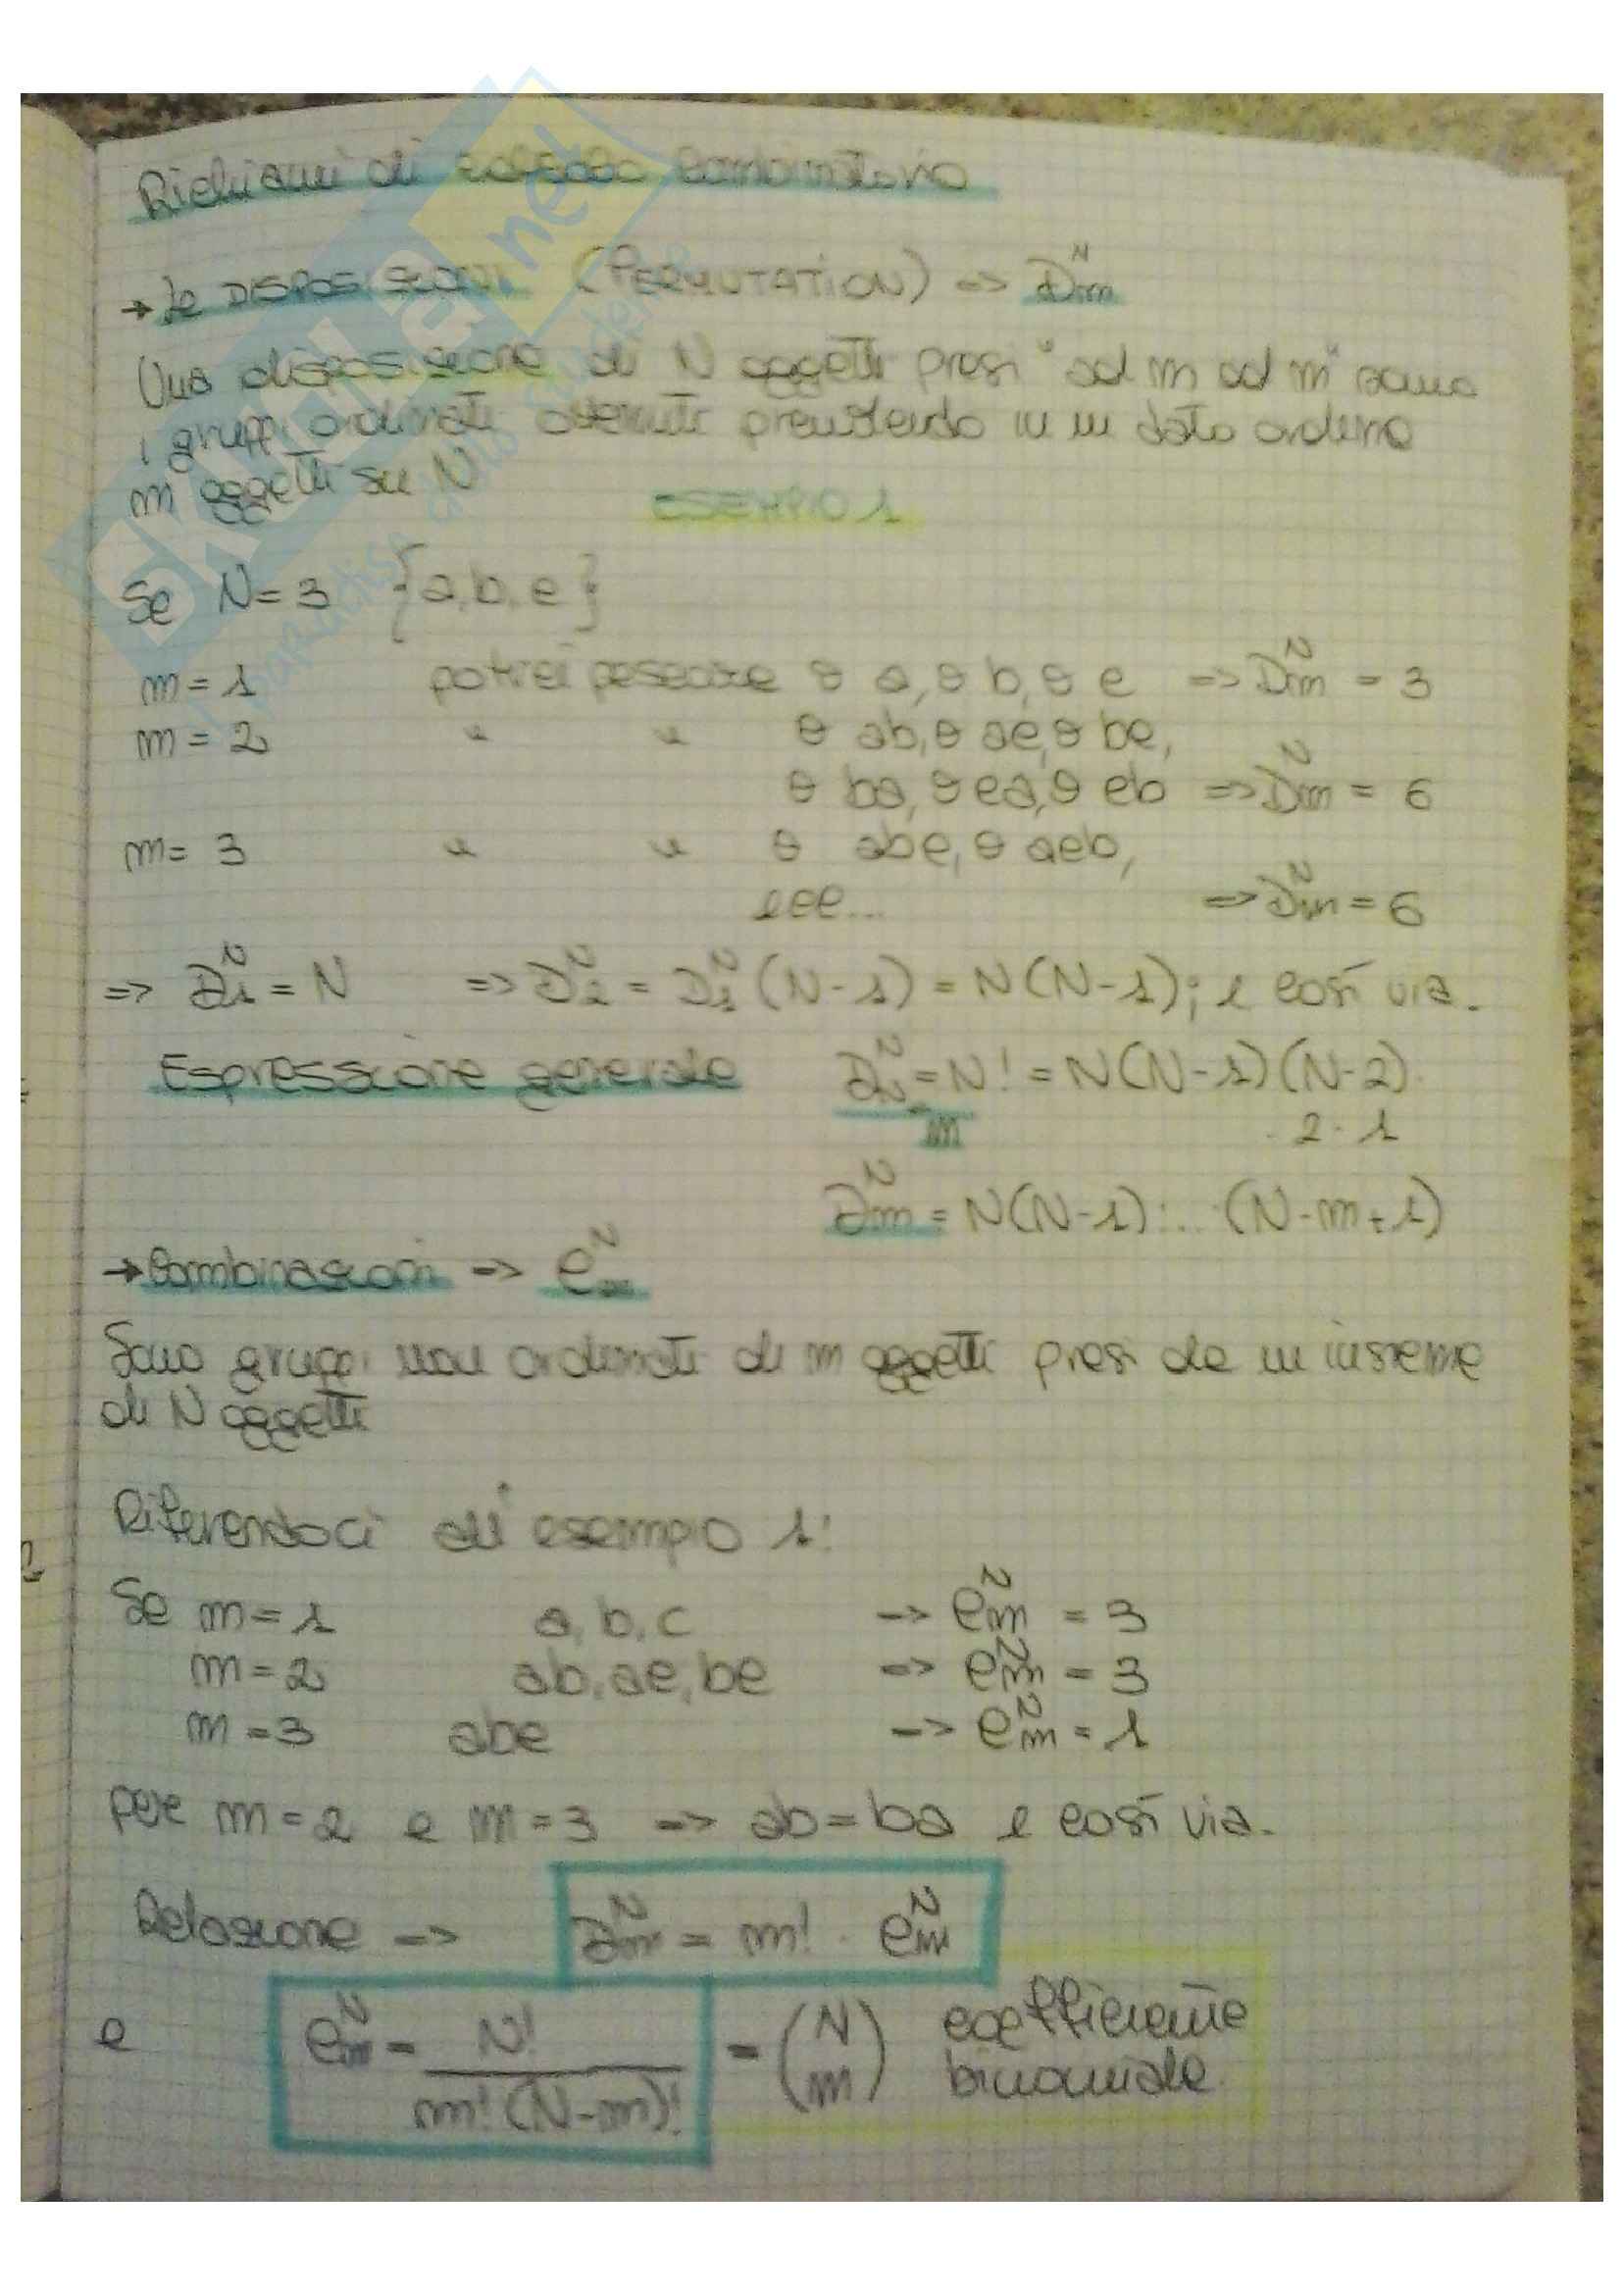 Richiami di calcolo combinatorio
→ Le DISPOSIZIONI (PERMUTATION) => D^N_m
Una disposizione di N oggetti presi "ad m ad m" sono
i gruppi ordinati ottenuti prendendo in un dato ordine
m oggetti su N
ESEMPIO 1
Se N=3 {a,b,c}
m=1 potrei pescare o a, o b, o c => D^N_m = 3
m=2 " " o ab, o ac, o bc,
o ba, o ca, o cb => D^N_m = 6
m=3 " " o abc, o acb,
ecc... => D^N_m = 6
=> D^N_1 = N => D^N_2 = D^N_1 (N-1) = N(N-1); e così via.
Espressione generale D^N_N = N! = N(N-1)(N-2).
m . 2 . 1
D^N_m = N(N-1)..... (N-m+1)
→ Combinazioni => C^N_m
Sono gruppi non ordinati di m oggetti presi da un insieme
di N oggetti
Riferendoci all'esempio 1:
Se m=1 a, b, c -> C^N_m = 3
m=2 ab, ac, bc => C^N_m = 3
m=3 abc -> C^N_m = 1
per m=2 e m=3 => ab=ba e così via.
Relazione => D^N_m = m! . C^N_m
e C^N_m = N! / m!(N-m)! = (N m) coefficiente
binomiale
Skuola.net